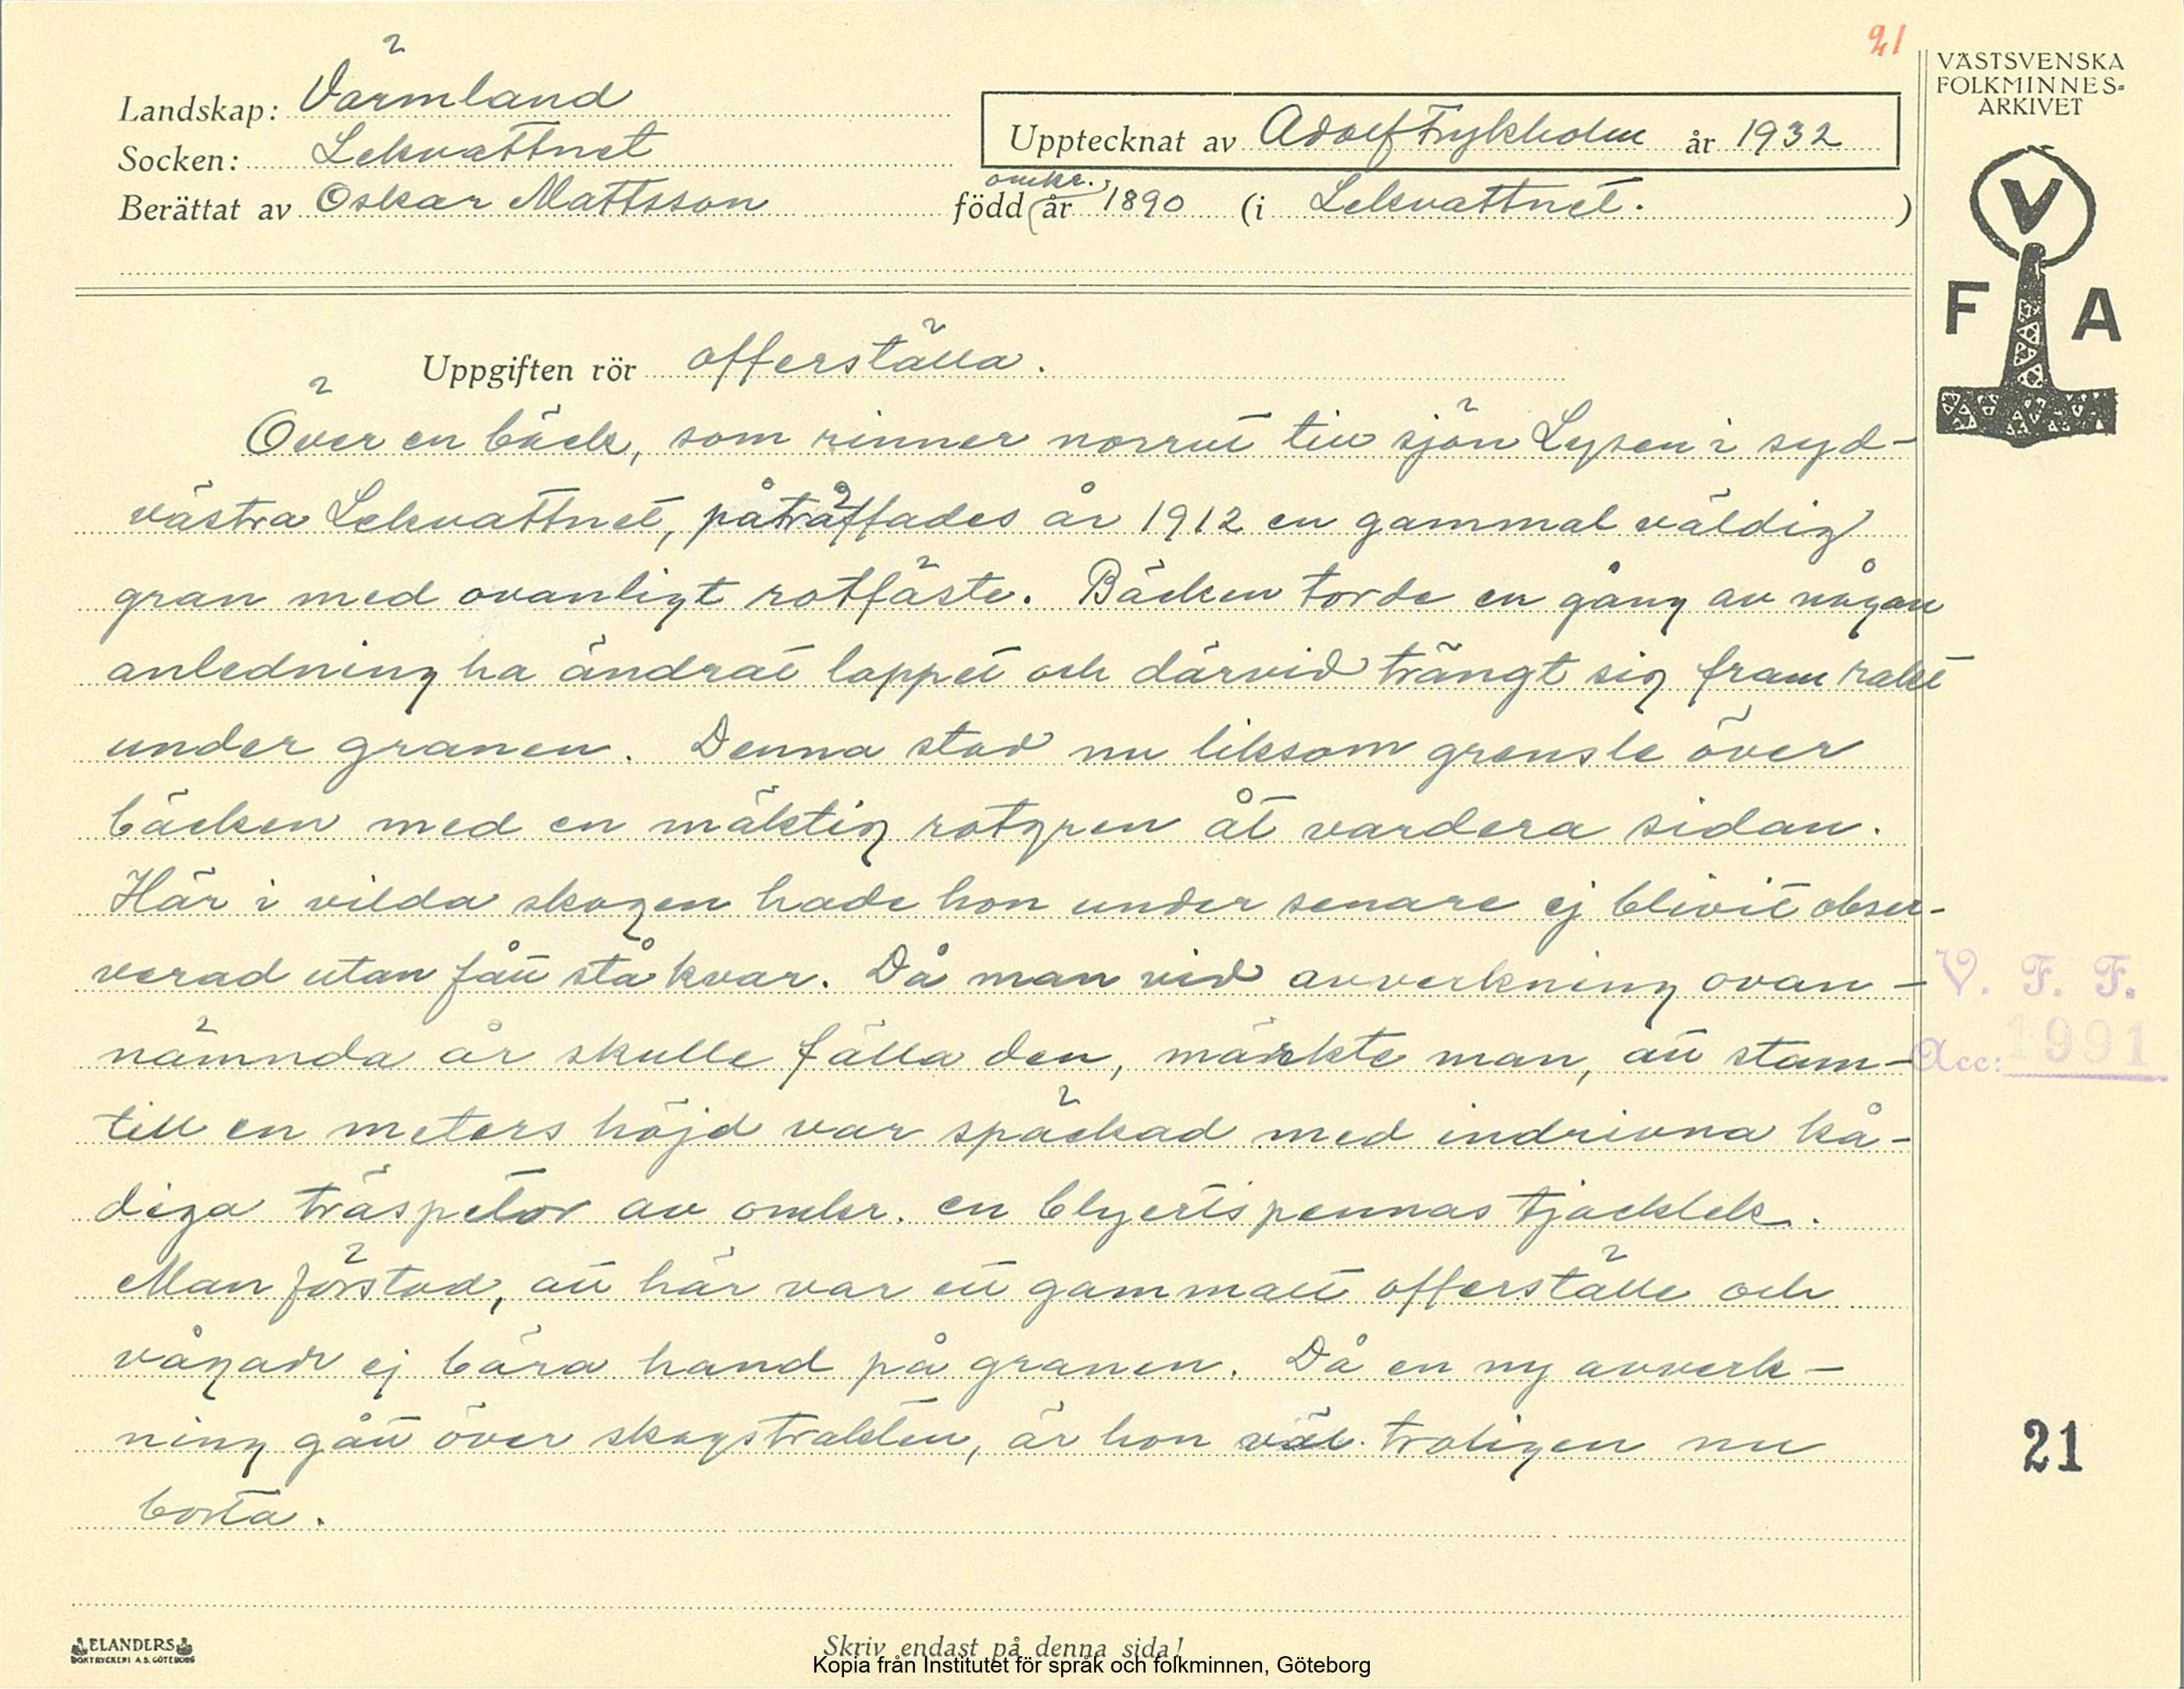 21
VÄSTSVENSKA
FOLKMINNES-
ARKIVET
Landskap: Värmland
Socken: Lekvattnet
Upptecknat av Adolf Frykholm år 1932
Berättat av Oskar Mattsson född omkr. år 1890 (i Lekvattnet. )
V
F A
Uppgiften rör offerställa.
Över en bäck, som rinner norrut till sjön Lysen i syd-
västra Lekvattnet, påträffades år 1912 en gammal väldig
gran med ovanligt rotfäste. Bäcken torde en gång av någon
anledning ha ändrat loppet och därvid trängt sig fram rakt
under granen. Denna stod nu liksom grensle över
bäcken med en mäktig rotgren åt vardera sidan.
Här i vilda skogen hade hon under senare ej blivit obser-
verad utan fått stå kvar. Då man vid avverkning ovan-
nämnda år skulle fälla den, märkte man, att stam-
till en meters höjd var späckad med indrivna kå-
diga träspetor av omkr. en blyertspennas tjocklek.
Man förstod, att här var ett gammalt offerställe och
vågade ej bära hand på granen. Då en ny avverk-
ning gått över skogstrakten, är hon väl troligen nu
borta.
V. F. F.
Acc: 1991
21
ELANDERS
BOKTRYCKERI A.B. GÖTEBORG
Skriv endast på denna sida!
Kopia från Institutet för språk och folkminnen, Göteborg